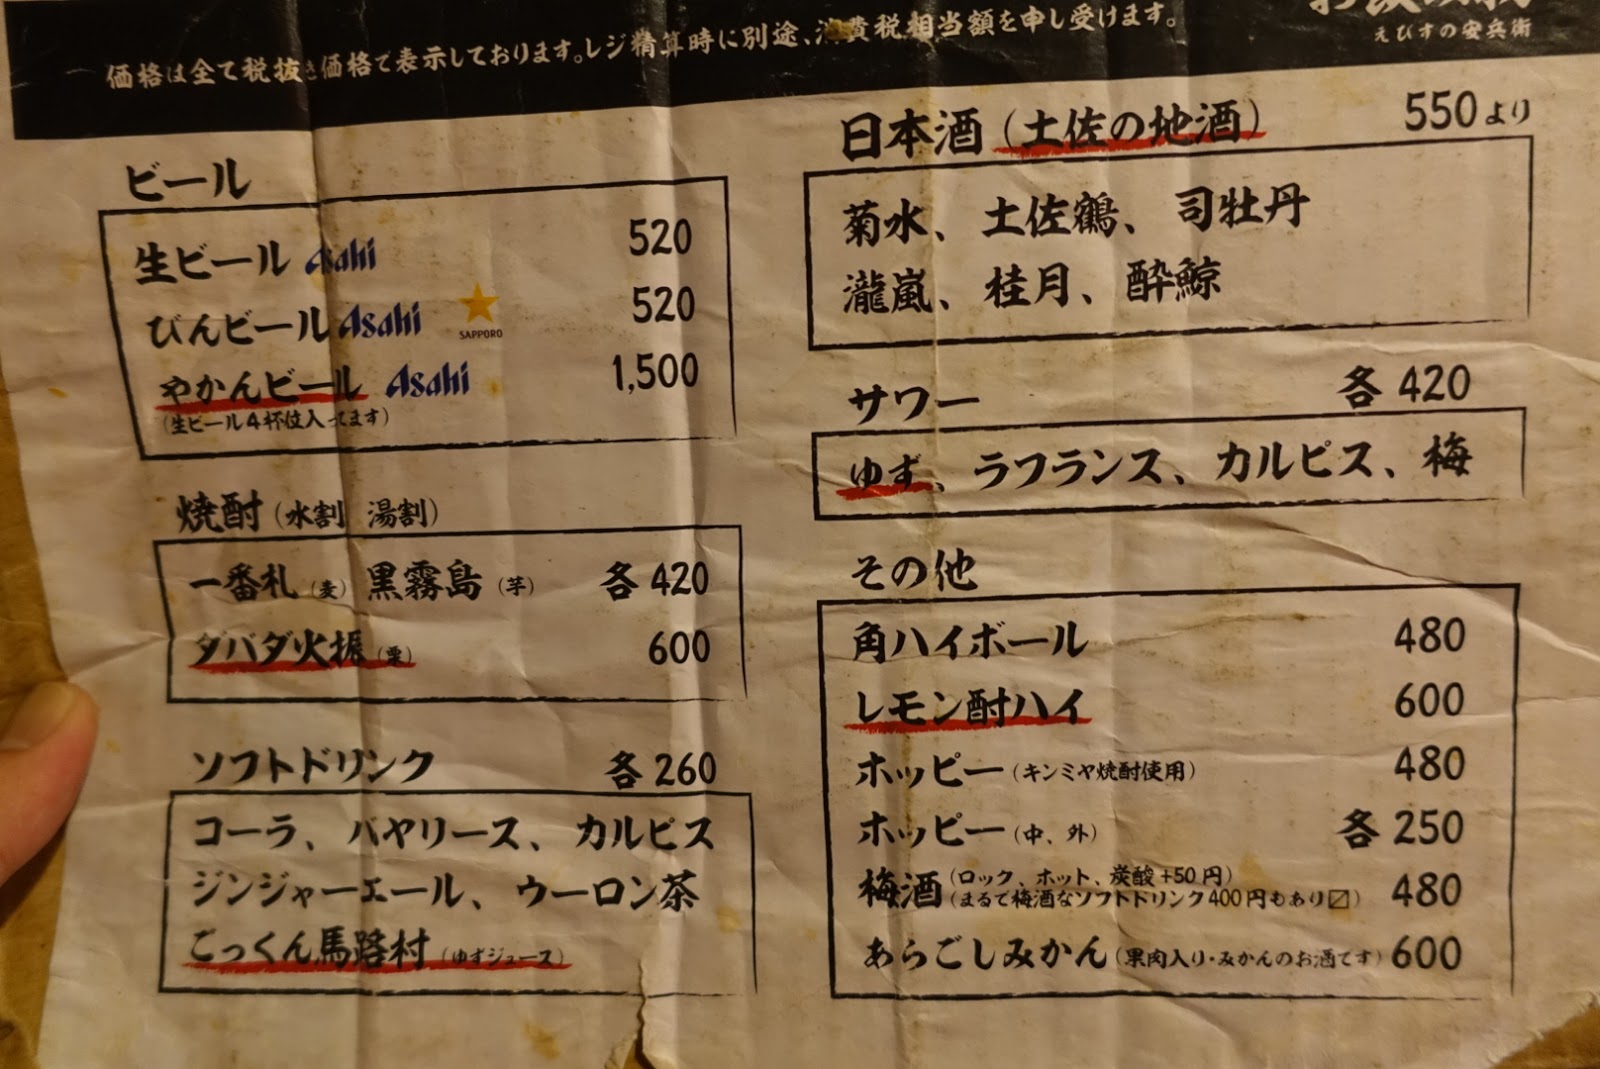 価格は全て税抜き価格で表示しております。レジ精算時に別途、消費税相当額を申し受けます。
えびすの安兵衛
ビール
生ビール Asahi 520
びんビール Asahi SAPPORO 520
やかんビール Asahi 1,500
(生ビール4杯位入ってます)
焼酎(水割 湯割)
一番札(麦) 黒霧島(芋) 各420
ダバダ火振(栗) 600
ソフトドリンク 各260
コーラ、バヤリース、カルピス
ジンジャーエール、ウーロン茶
ごっくん馬路村(ゆずジュース)
日本酒(土佐の地酒) 550より
菊水、土佐鶴、司牡丹
瀧嵐、桂月、酔鯨
サワー 各420
ゆず、ラフランス、カルピス、梅
その他
角ハイボール 480
レモン酎ハイ 600
ホッピー(キンミヤ焼酎使用) 480
ホッピー(中、外) 各250
梅酒(ロック、ホット、炭酸+50円) 480
(まるで梅酒なソフトドリンク400円もあり〼)
あらごしみかん(果肉入り・みかんのお酒です) 600